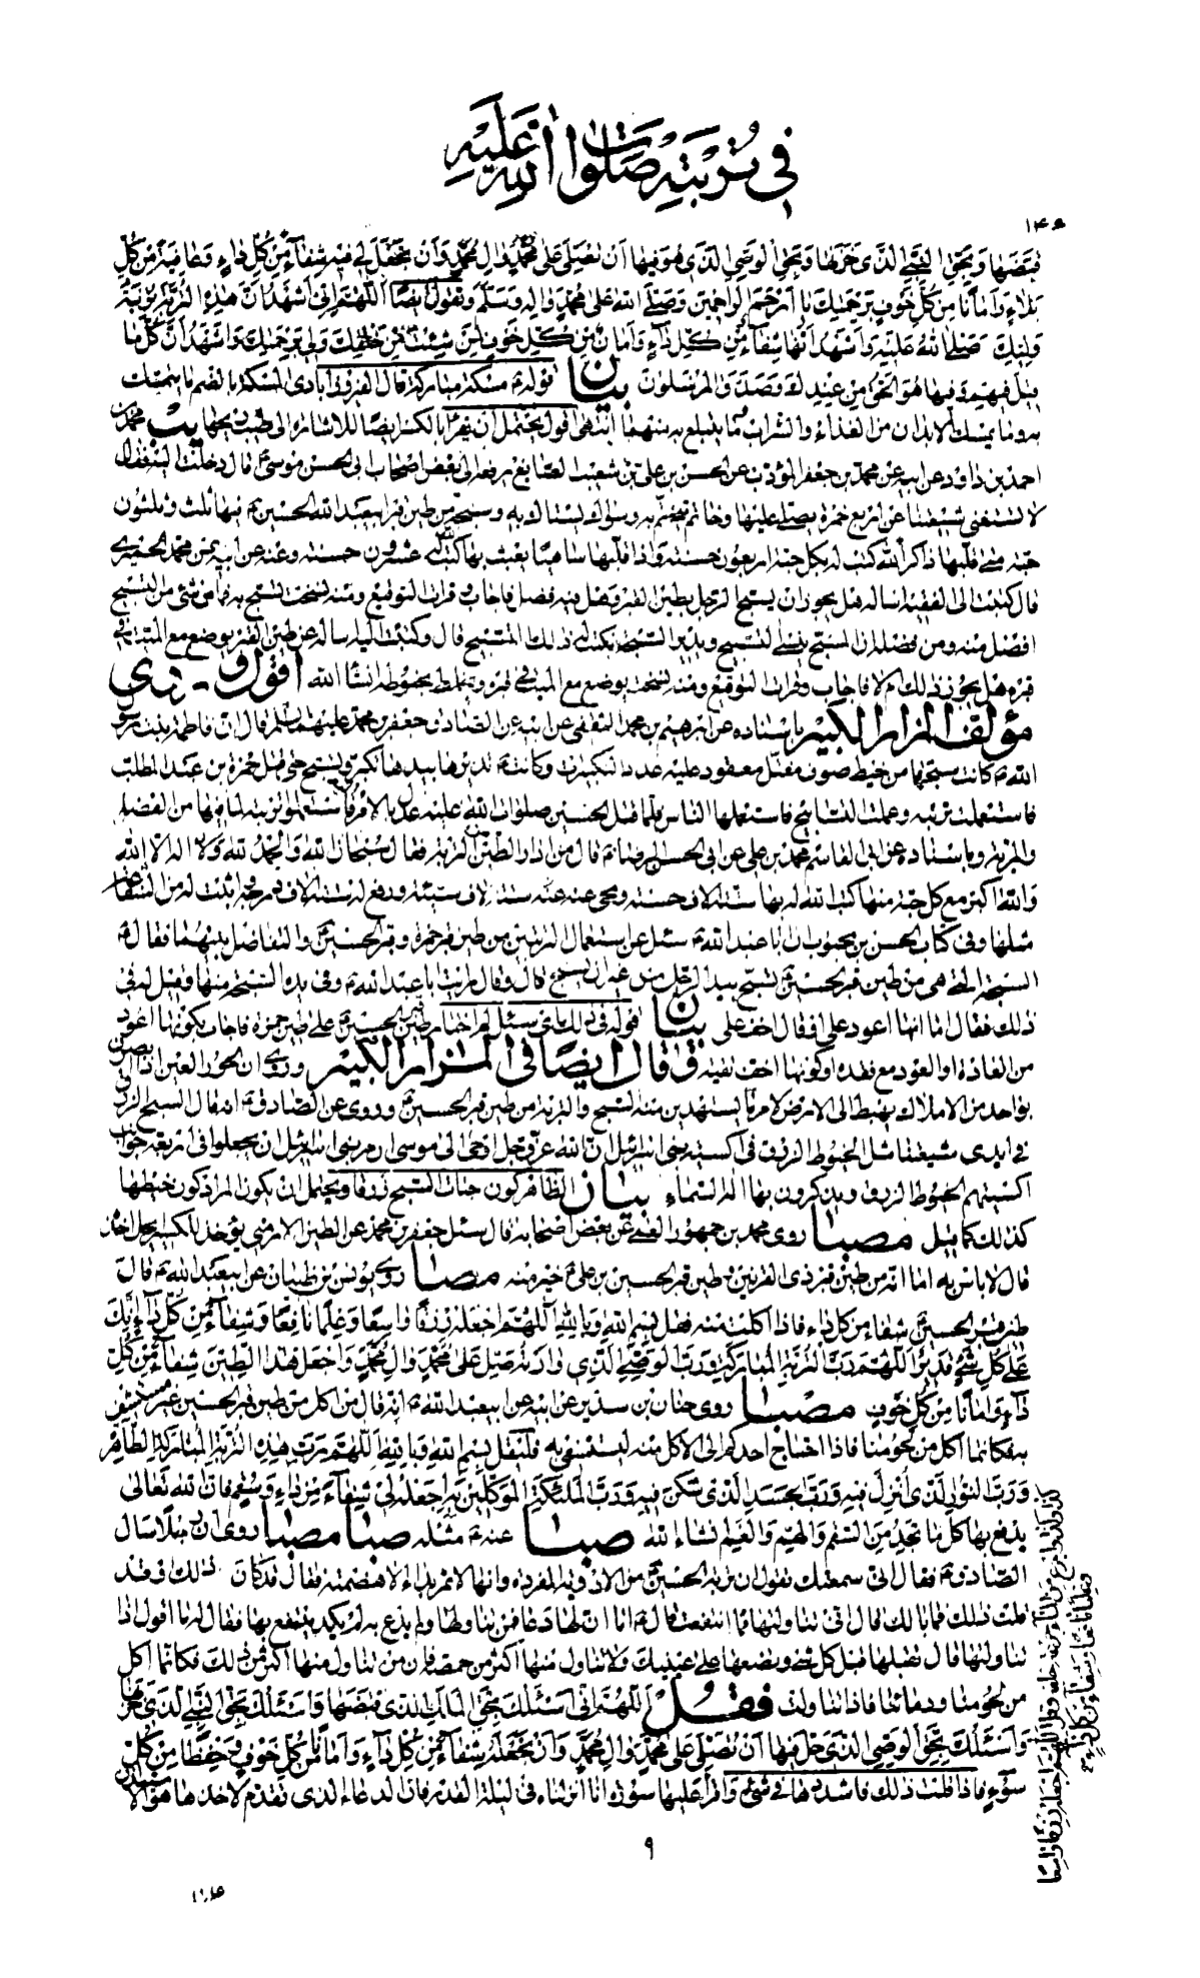 في تربته صلوات الله عليه
١٤٥
قبضها وبحق النبي الذي خزنها وبحق الوصي الذي هو فيها أن تصلي على محمد وآل محمد وأن تجعل لي فيه شفاء من كل داء وعافية من كل
بلاء وأمانا من كل خوف برحمتك يا أرحم الراحمين وصلى الله على محمد وآله وسلم وتقول أيضا اللهم إني أشهد أن هذه التربة تربة
وليك صلى الله عليه وأشهد أنها شفاء من كل داء وأمان من كل خوف لمن شئت من خلقك ولي برحمتك وأشهد أن كل ما
قيل فيهم وفيها هو الحق من عندك وصدق المرسلون بيان قوله مسكة مباركة قال الفيروزآبادي المسكة بالضم ما يتمسك
به وما يمسك الأبدان من الغذاء والشراب أو ما يتبلغ به منهما انتهى أقول يحتمل أن يقرأ بالكسر أيضا للإشارة إلى طيب ريحها يب محمد بن
احمد بن داود عن ابيه عن محمد بن جعفر المؤدب عن الحسن بن علي بن شعيب الصايغ يرفعه إلى بعض اصحاب ابي الحسن موسى قال دخلت اليه فقال
لا تستغني شيعتنا عن اربع خمرة يصلي عليها وخاتم يتختم به وسواك يستاك به وسبحة من طين قبر ابي عبد الله الحسين فيها ثلث وثلثون
حبة متى قلبها ذاكرا لله كتب له بكل حبة اربعون حسنة واذا قلبها ساهيا يعبث بها كتب له عشرون حسنة وعنه عن ابيه عن محمد الحميري
قال كتبت الى الفقيه اساله هل يجوز ان يسبح الرجل بطين القبر وهل فيه فضل فاجاب وقرات التوقيع ومنه نسخت تسبح به فما من شئ من التسبيح
افضل منه ومن فضله ان المسبح ينسى التسبيح ويدير السبحة فيكتب له ذلك التسبيح قال وكتبت اليه اساله عن طين القبر يوضع مع الميت في
قبره هل يجوز ذلك ام لا فاجاب وقرات التوقيع ومنه نسخت يوضع مع الميت في قبره ويخلط بحنوطه انشا الله اقول وروى
مؤلف المزار الكبير باسناده عن ابرهيم بن محمد الثقفي عن ابيه عن الصادق جعفر بن محمد عليهما السلم قال ان فاطمة بنت رسول
الله كانت سبحتها من خيط صوف مفتل معقود عليه عدد التكبيرات وكانت تديرها بيدها تكبر وتسبح حتى قتل حمزة بن عبد المطلب
فاستعملت تربته وعملت التسابيح فاستعملها الناس فلما قتل الحسين صلوات الله عليه عدل بالامر اليه فاستعملوا تربته لما فيها من الفضل
والمزية وباسناده عن ابي القاسم محمد بن علي عن ابي الحسن الرضا قال من ادار الطين من التربة فقال سبحان الله والحمد لله ولا اله الا الله
والله اكبر مع كل حبة منها كتب الله له بها ستة الاف حسنة ومحى عنه ستة الاف سيئة ورفع له ستة الاف درجة واثبت له من الشفاعة
مثلها وفي كتاب الحسن بن محبوب ان ابا عبد الله سئل عن استعمال التربتين من طين قبر حمزة وقبر الحسين والتفاضل بينهما فقال
السبحة التي هي من طين قبر الحسين تسبح بيد الرجل من غير ان يسبح قال وقال رايت ابا عبد الله وفي يده السبحة منها وقيل له في
ذلك فقال اما انها اعود علي او قال اخف علي بيان
من الفائدة او العود مع فقده او كونها اخف لنفيه وقال ايضا في المزار الكبير وروى ان الحور العين اذا بصرن
بواحد من الاملاك يهبط الى الارض لامر ما يستهدين منه السبح والتربة من طين قبر الحسين وروى عن الصادق انه قال السبح الزرق
في ايدي شيعتنا مثل الخيوط الزرق في اكسية بني اسرائيل ان الله عز وجل اوحى الى موسى ان مر بني اسرائيل ان يجعلوا في اربعة جوانب
اكسيتهم الخيوط الزرق ويذكرون بها اله السماء بيان الظاهر كون حبات السبح زرقا ويحتمل ان يكون المراد كون خيطها
كذلك كما قيل مصبا روى محمد بن جمهور العمي عن بعض اصحابه قال سئل جعفر بن محمد عن الطين الارمني يؤخذ للكسير يحل اخذه
قال لا باس به اما انه من طين قبر ذي القرنين وطين قبر الحسين بن علي خير منه مصبا روى يونس بن ظبيان عن ابي عبد الله قال
طين قبر الحسين شفاء من كل داء فاذا اكلت منه فقل بسم الله وبالله اللهم اجعله رزقا واسعا وعلما نافعا وشفاء من كل داء إنك
على كل شئ قدير اللهم رب التربة المباركة ورب الوصي الذي وارته صل على محمد وآل محمد واجعل هذا الطين شفاء من كل
داء وأمانا من كل خوف مصبا روى حنان بن سدير عن ابيه عن ابي عبد الله انه قال من اكل من طين قبر الحسين غير مستشف
به فكانما اكل من لحومنا فاذا احتاج احدكم الى الاكل منه ليستشفي به فليقل بسم الله وبالله اللهم رب هذه التربة المباركة الطاهرة
ورب النور الذي أنزل فيه ورب الجسد الذي سكن فيه ورب الملئكة الموكلين به اجعله لي شفاء من داء
صبا عنه مثله صبا مصبا روى ان رجلا سال
الصادق فقال اني سمعتك تقول ان تربة الحسين من الادوية المفردة وانها لا تمر بداء الا هضمته فقال قد كان ذلك او قد
قلت ذلك فما بالك قال اني تناولتها فما انتفعت قال اما ان لها دعاء فمن تناولها ولم يدع به لم يكد ينتفع بها فقال له ما اقول اذا
تناولتها قال تقبلها قبل كل شئ وتضعها على عينيك ولا تناول منها اكثر من حمصة فان من تناول منها اكثر من ذلك فكانما اكل
من لحومنا ودمائنا فاذا تناولت فقل اللهم إني أسئلك بحق الملك الذي قبضها وأسئلك بحق النبي الذي خزنها
وأسئلك بحق الوصي الذي حل فيها أن تصلي على محمد وآل محمد وأن تجعله شفاء من كل داء وأمانا من كل خوف وحفظا من كل
سوء فاذا قلت ذلك فاشددها في شئ واقرا عليها سورة انا انزلناه في ليلة القدر فان الدعاء الذي تقدم لاخذها هو الاستيذان
٩